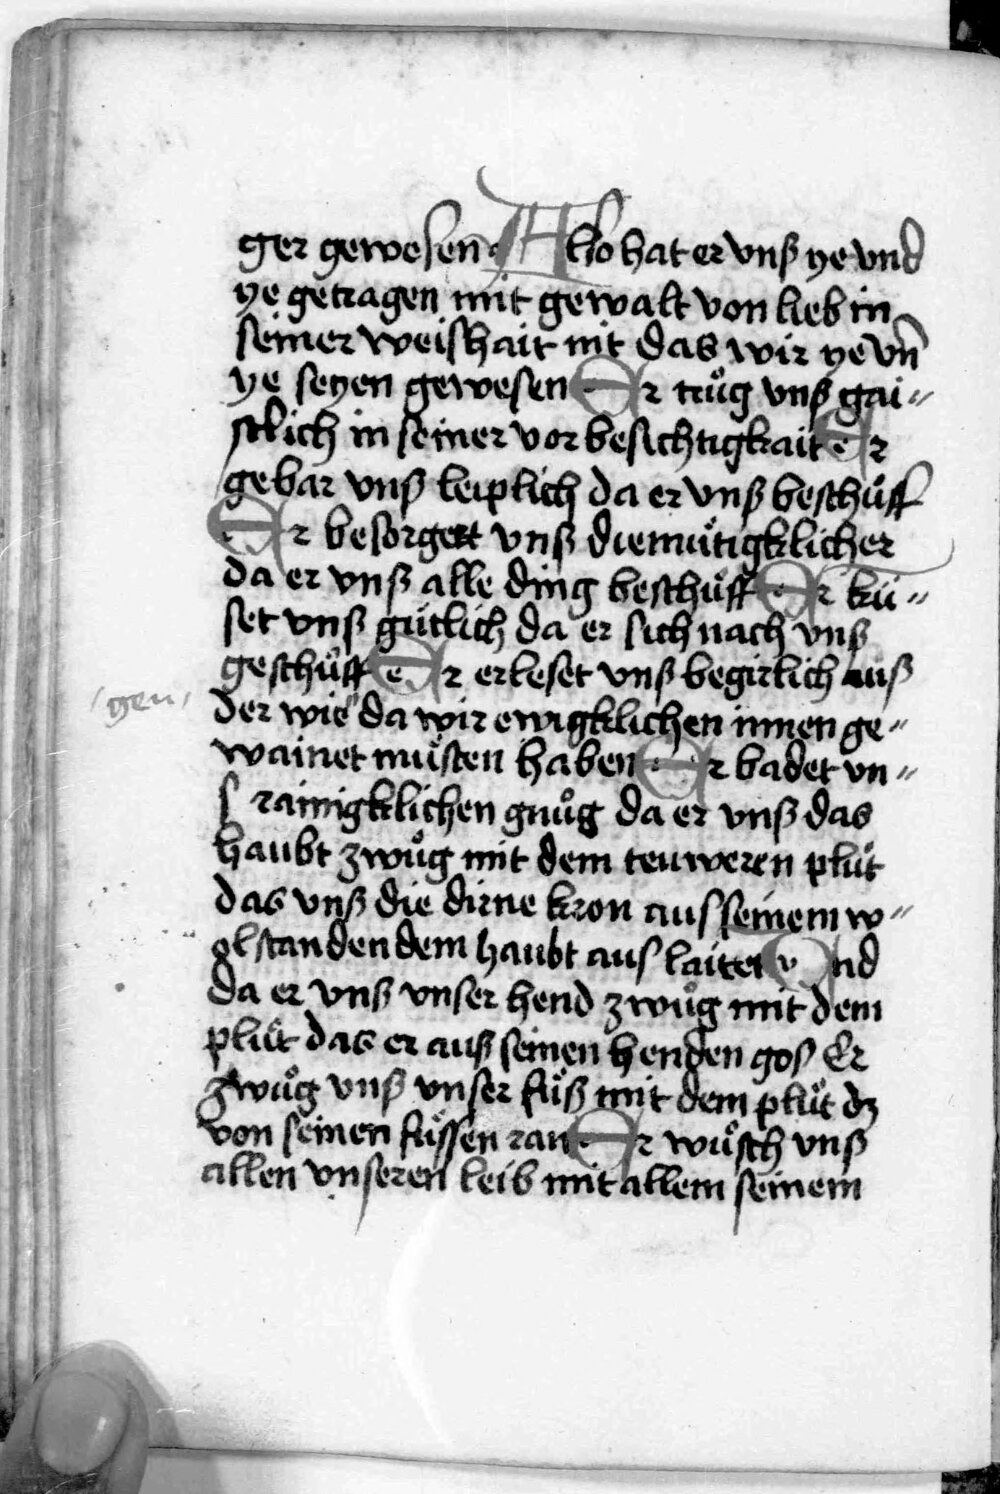 ger gewesen Also hat er vnß ye vnd
ye getragen mit gewalt von lieb in
seiner weishait nit das wir ye vn̄
ye seyen gewesen Er trůg vnß gai〃
stlich in seiner vorbesichtigkait Er
gebar vnß leiplich da er vnß beschůff
Er besorgett vnß diemůtigklicher
da er vnß alle ding beschůff Er kü〃
set vnß gütlich da er sich nach vnß
geschůff Er erleset vnß begirlich auß
gen
der wie da wir ewigklichen innen ge〃
wainet müsten haben Er badet vn〃
s rainigklichen gnůg da er vnß das
haubt zwůg mit dem teuweren plůt
das vnß die dirne kron aus seinem w〃
olstanden dem haubt aus laitet Vnd
da er vnß vnser hend zwůg mit dem
plůt das er auß seinen henden gos Er
zwůg vnß vnser füß mit dem plůt dz
von seinen füssen ran Er wůsch vnß
allen vnseren leib mit allem seinem